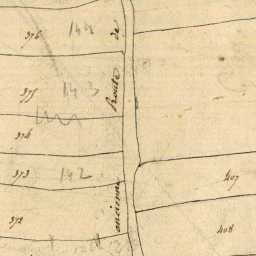 376 144
375 143
374
373 142
372
407
408
ancienne Route de